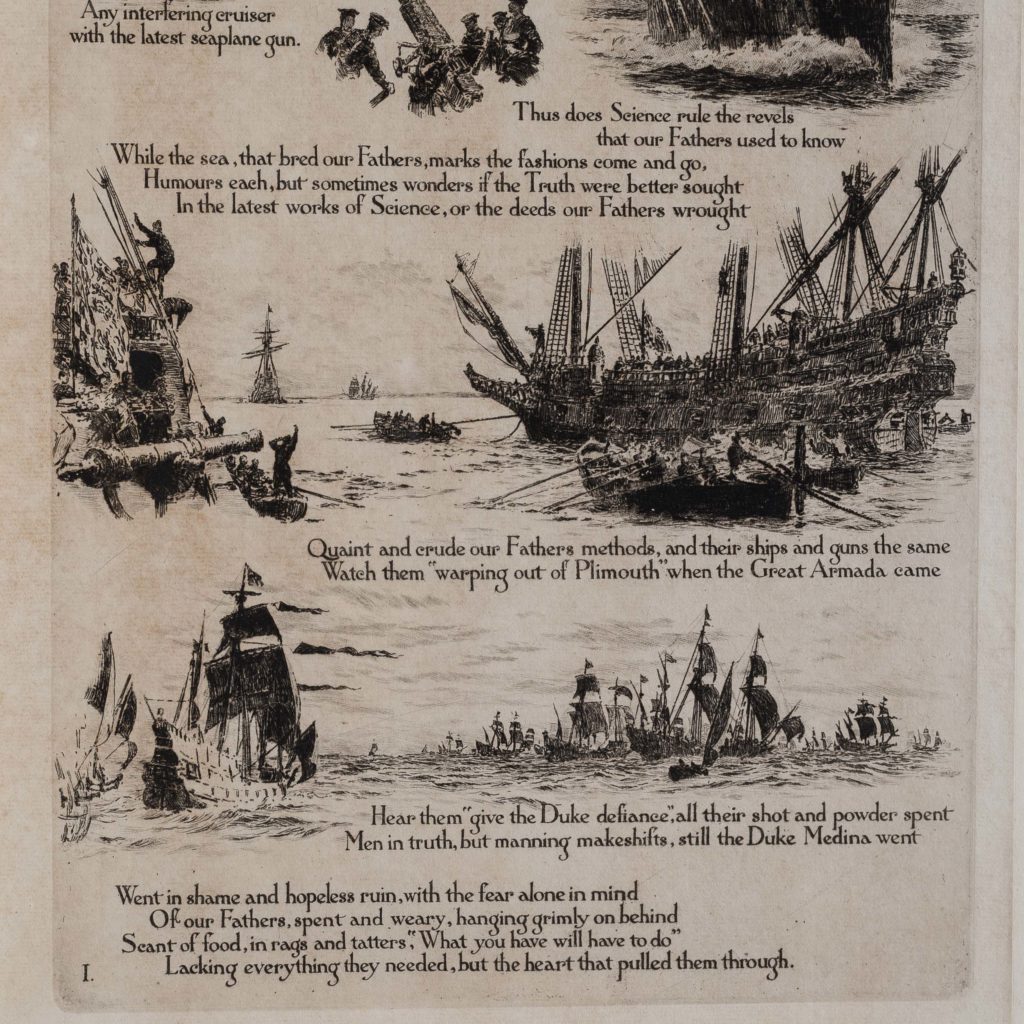 Any interfering cruiser
with the latest seaplane gun.
Thus does Science rule the revels
that our Fathers used to know
While the sea, that bred our Fathers, marks the fashions come and go,
Humours each, but sometimes wonders if the Truth were better sought
In the latest works of Science, or the deeds our Fathers wrought
Quaint and crude our Fathers methods, and their ships and guns the same
Watch them "warping out of Plimouth" when the Great Armada came
Hear them "give the Duke defiance", all their shot and powder spent
Men in truth, but manning makeshifts, still the Duke Medina went
Went in shame and hopeless ruin, with the fear alone in mind
Of our Fathers, spent and weary, hanging grimly on behind
Scant of food, in rags and tatters, "What you have will have to do"
Lacking everything they needed, but the heart that pulled them through.
I.